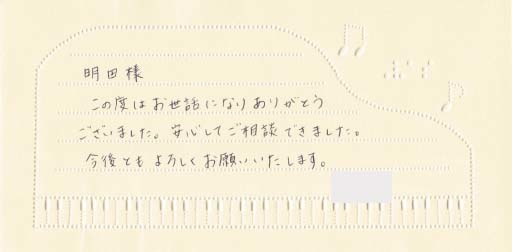 明田様
この度はお世話になりありがとう
ございました。安心してご相談できました。
今後ともよろしくお願いいたします。